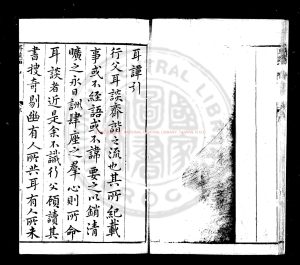 耳譚引
行父耳談齊諧之流也其所紀載
事或不經語或不諱要之以銷清
曠之永日詶肆座之羣心則所命
耳談者近是余不識行父頋讀其
書搜奇剔幽有人所共耳有人所未